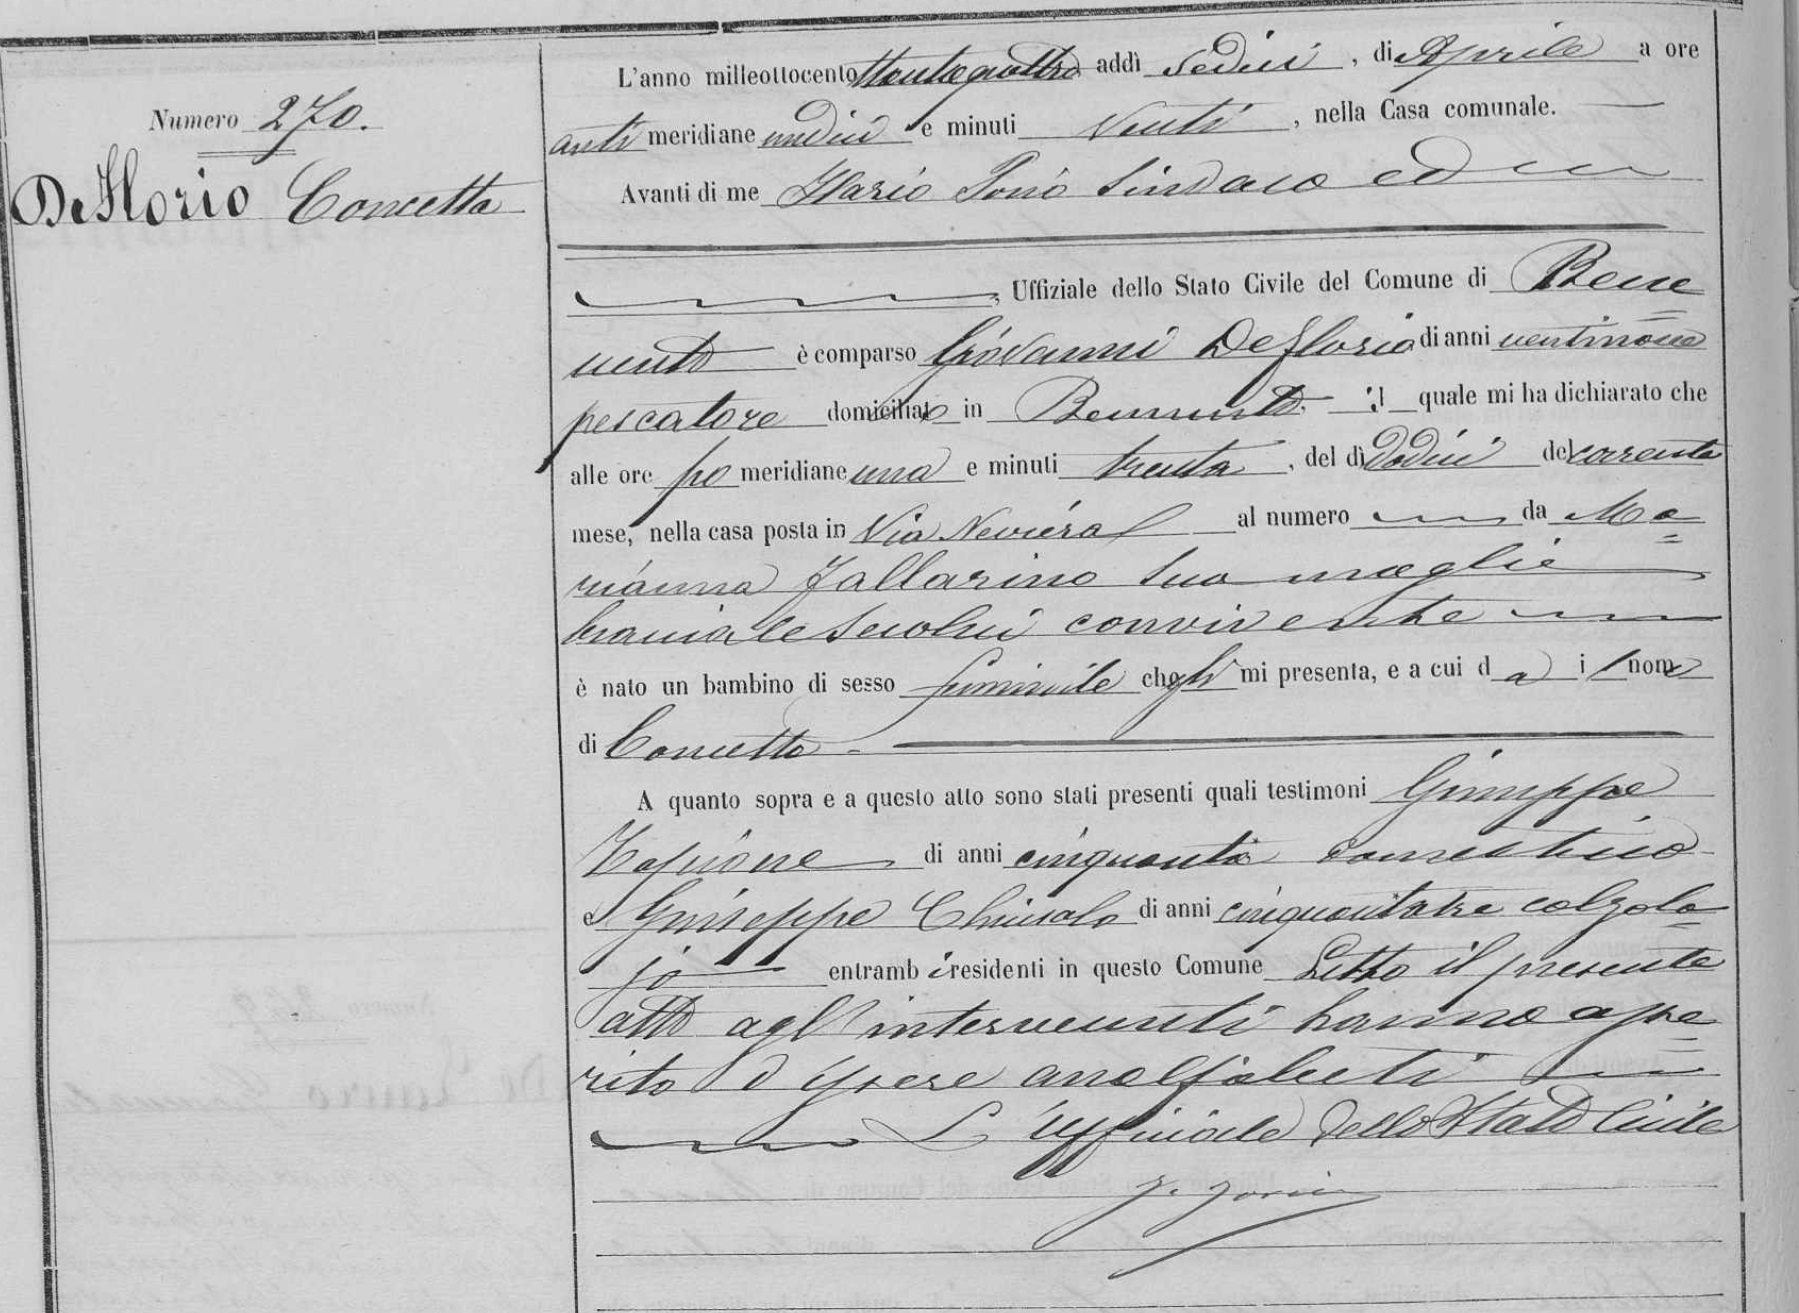 Numero 270.
De Florio Concetta
L'anno milleottocento ottantaquattro addì sedici, di Aprile a ore
anti meridiane undici e minuti venti, nella Casa comunale.
Avanti di me Ilario Sindaco ed
, Uffiziale dello Stato Civile del Comune di Bene
vento è comparso Giovanni De Florio di anni ventinove
pescatore domiciliato in Benevento. il quale mi ha dichiarato che
alle ore po meridiane una e minuti trenta, del dì dodici del corrente
mese, nella casa posta in Via Neviera al numero da Ma
rianna Fallarino sua moglie
seco lui convivente
è nato un bambino di sesso feminile che gli mi presenta, e a cui da il nome
di Concetta
A quanto sopra e a questo atto sono stati presenti quali testimoni Giuseppe
di anni cinquanta
e Giuseppe di anni cinquantatre calzola
jo entrambi residenti in questo Comune Letto il presente
atto agl'intervenuti hanno asse
rito d'essere analfabeti
L'Uffiziale dello Stato Civile